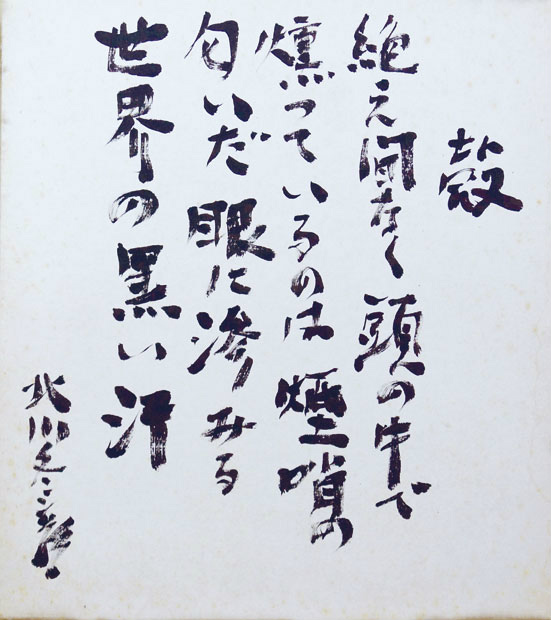 殻
絶え間なく頭の中で
燻っているのは 煙硝の
匂いだ 眼に滲みる
世界の黒い汗
北川冬彦